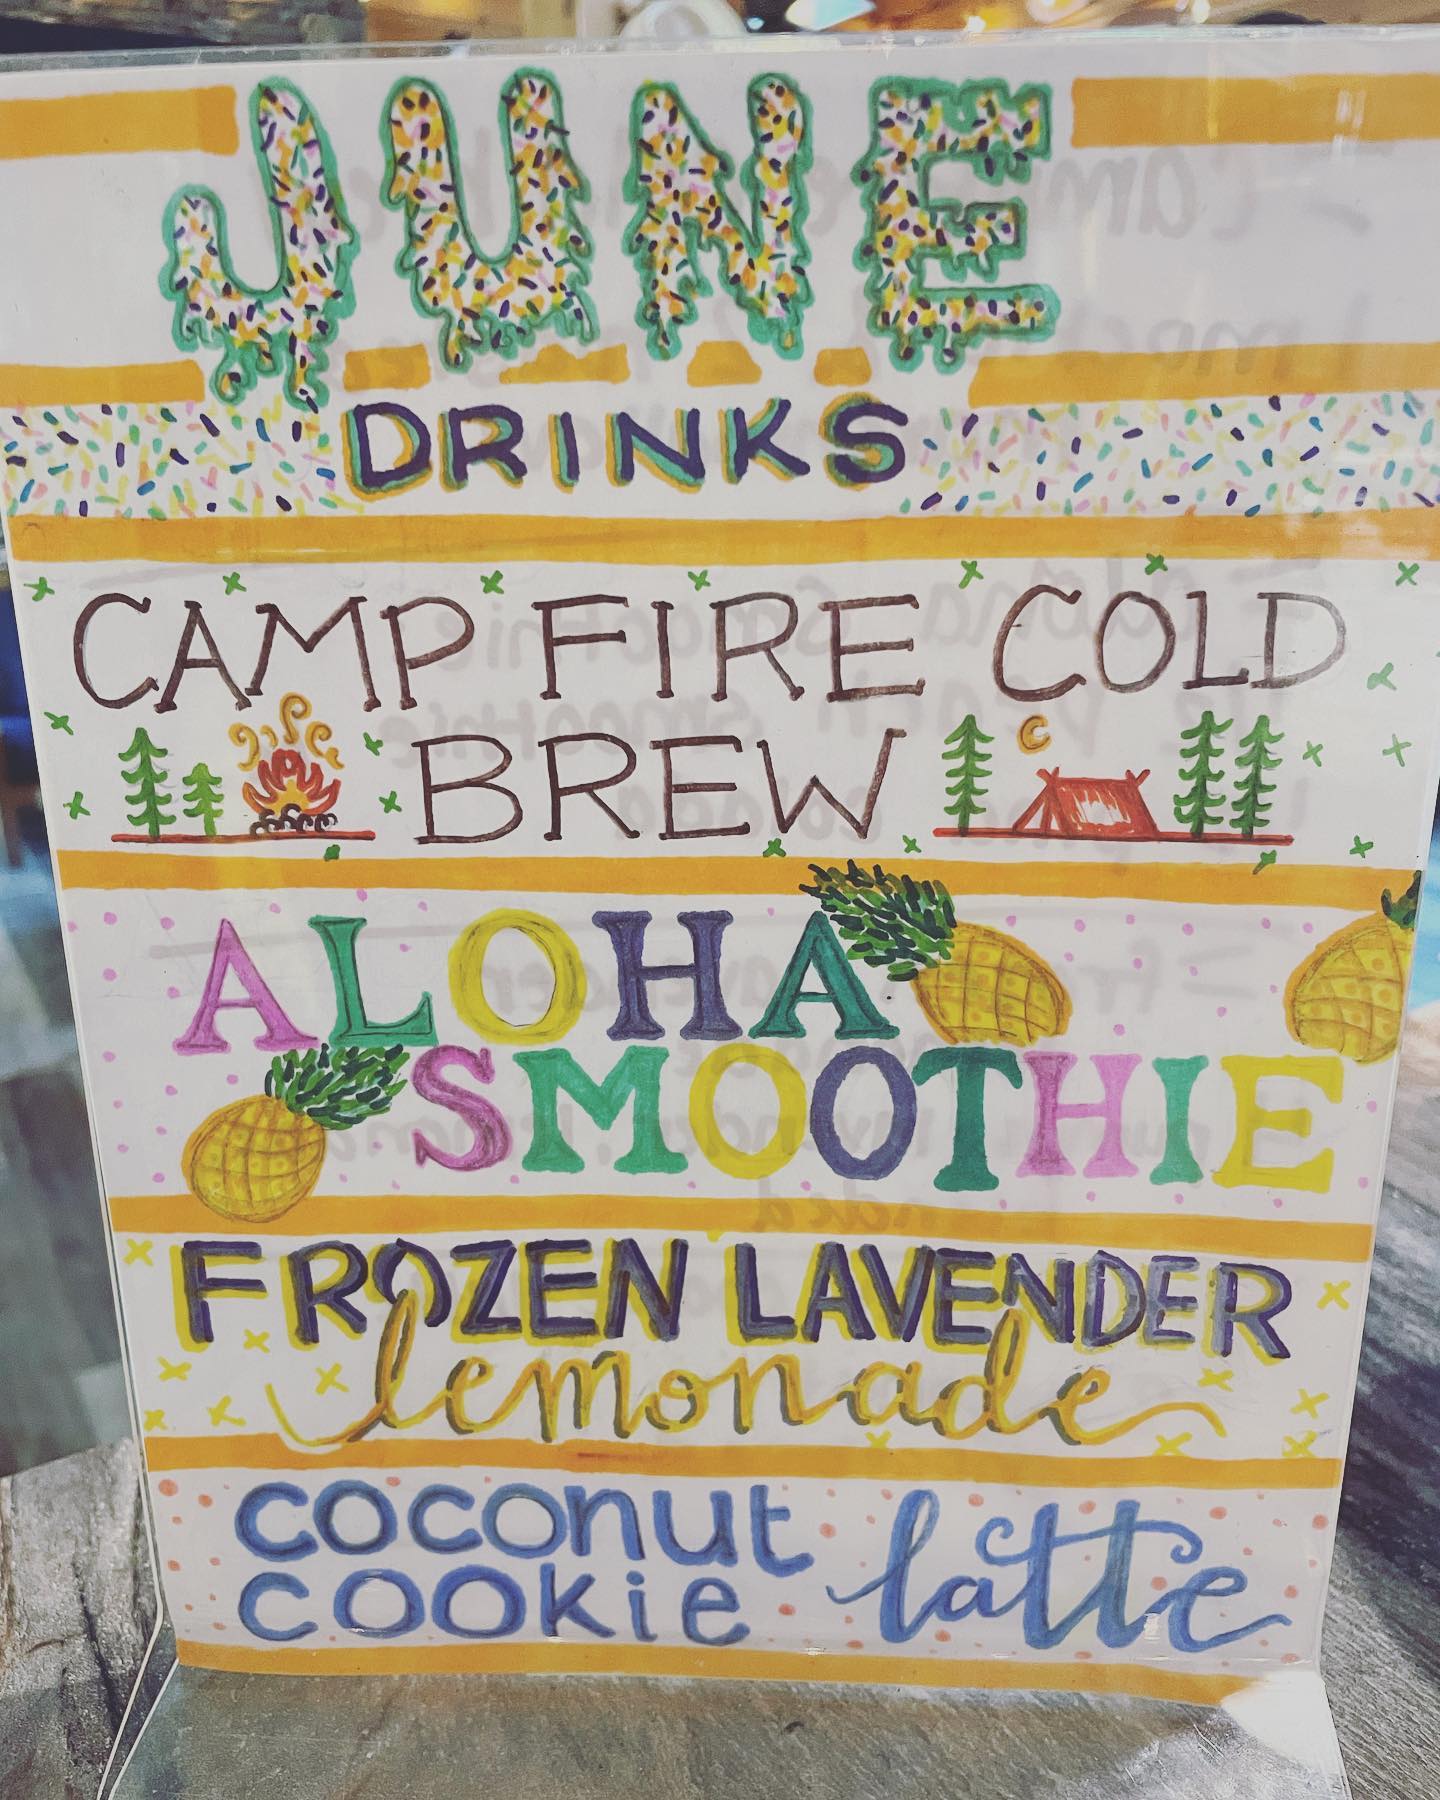 JUNE
DRINKS
CAMPFIRE COLD
BREW
ALOHA
SMOOTHIE
FROZEN LAVENDER
lemonade
coconut
cookie latte